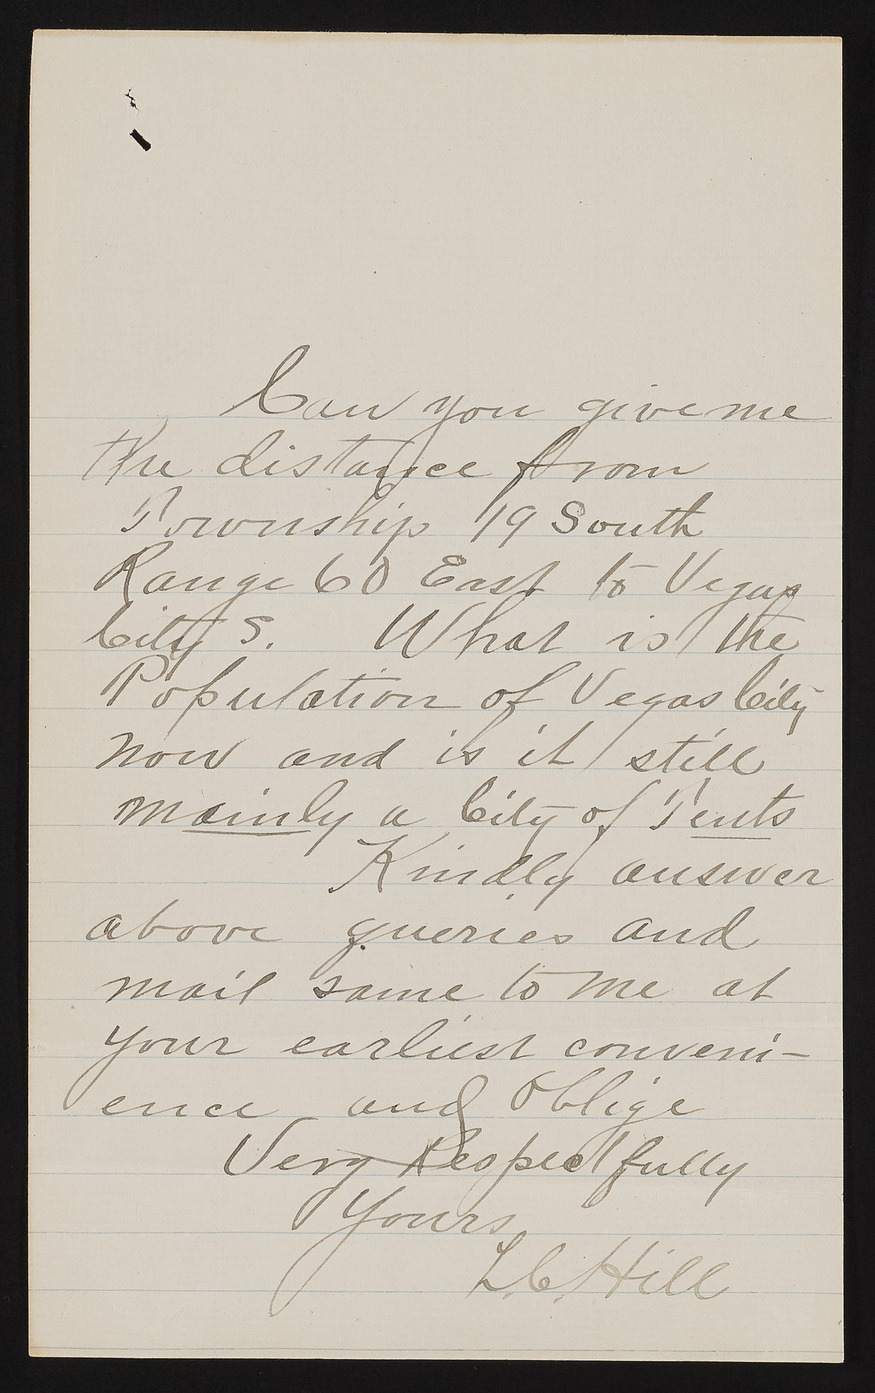 Can you give me
the distance from
Township 19 South
Range 60 East to Vegas
City S. What is the
Population of Vegas City
now and is it still
mainly a City of Tents
Kindly answer
above queries and
mail same to me at
your earliest conveni-
ence and Oblige
Very Respectfully
Yours
L.C. Hill